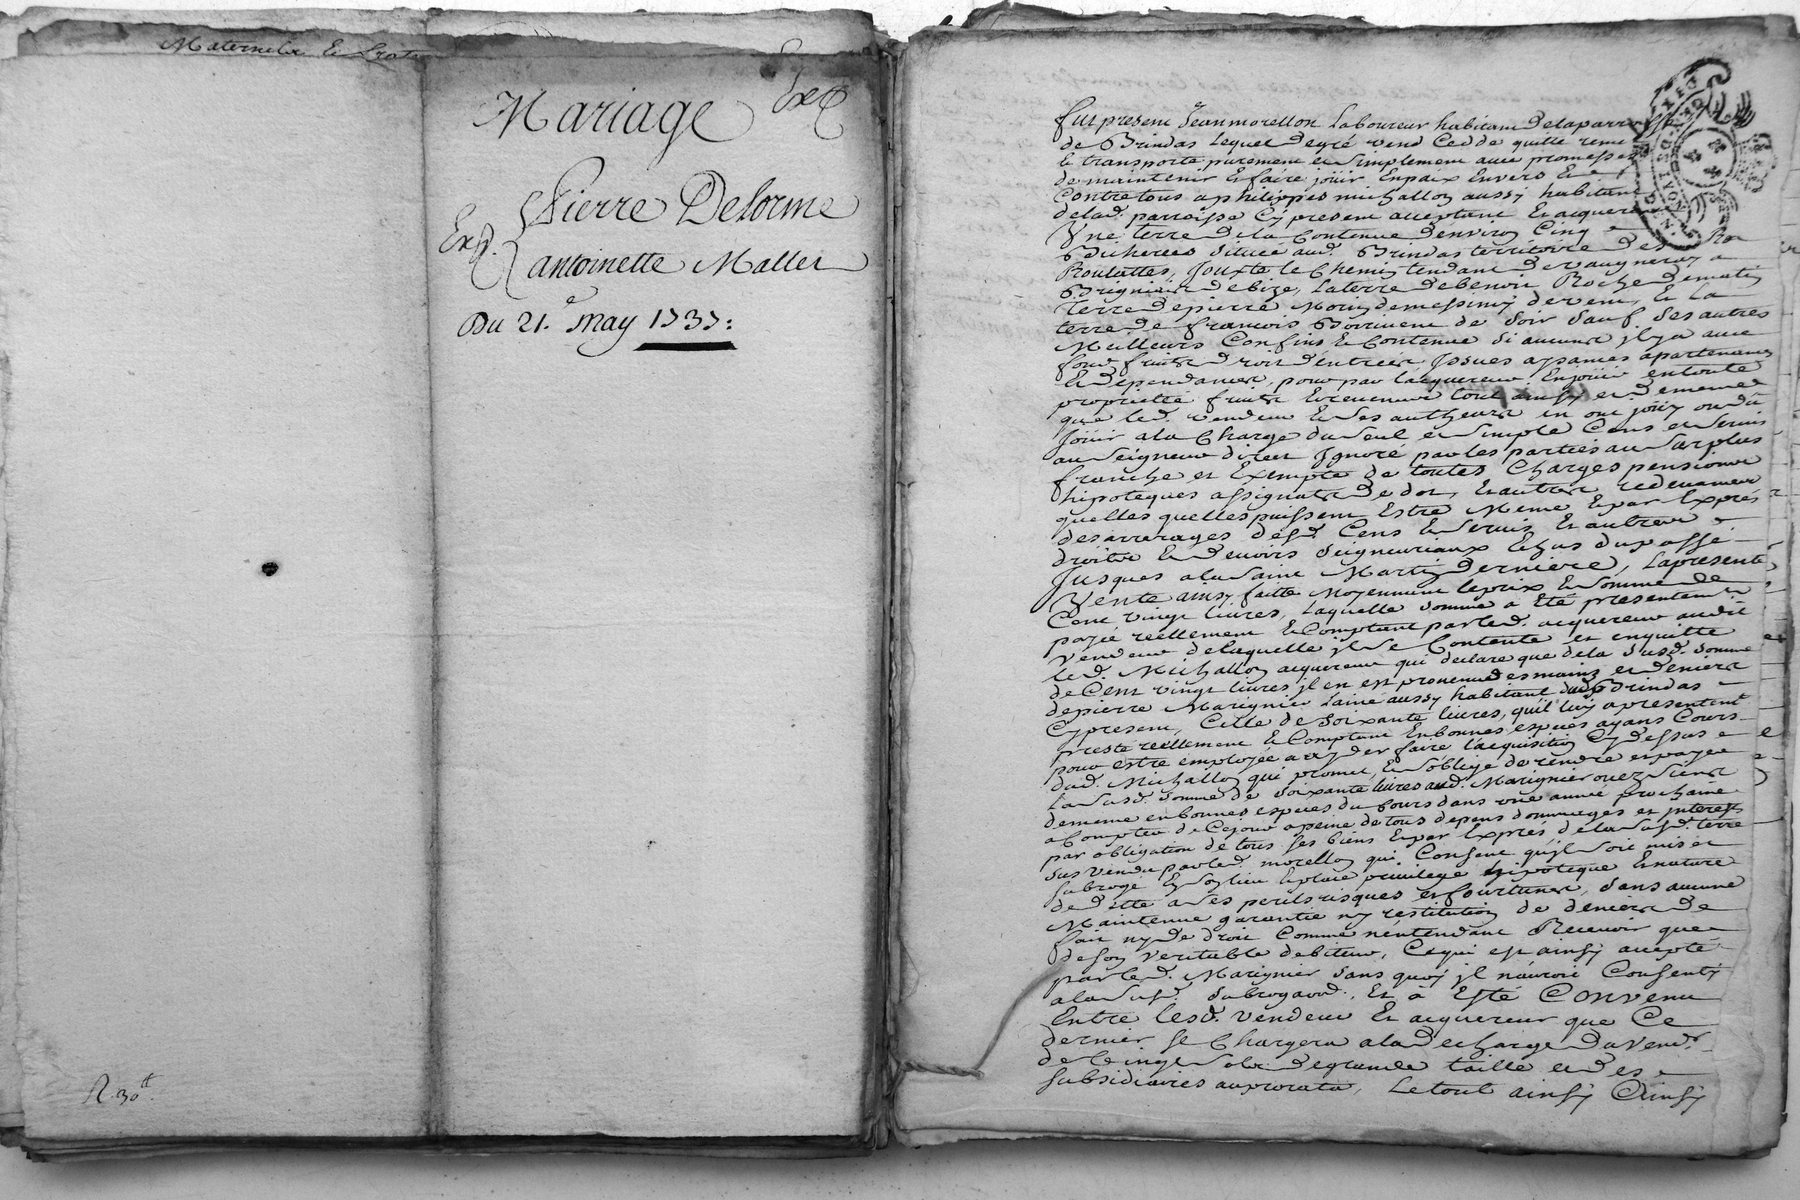 Maternelle &
Mariage
Exp
Pierre Delorme
Exp.
antoinette Mallet
Du 21.e May 1737:
R. 30tt
fut present Jean morellon Laboureur habitant delaparr
de Brindas Lequel degré vend Cedde quitte remet
& transporte purement et simplement avec promesses
de maintenir & faire joüir Enpaix Envers &
Contre tous a philippes michallon aussy habitant
delad. parroisse Cy present acceptant & acquereur
Une terre de la Contenue denviron Cinq
Bicherées Située aud. Brindas territoire des
Roulattes, Jouxte le Chemin tendant de vaugneray a
Brignais debize, La terre de benoit Roche dematin
Terre de pierre Morin de messimy de vent, & La
terre de francois de Soir Sauf Ses autres
Meilleurs Confins & Contenue Si aucuns jl y a avec
fond fruits droit dentrées, Jssues aysances apartenances
& dependances, pour par Lacquereur Enjoüir entoute
proprieté fruits & revenus tout ainsy et dememe
que led. vendeur & Ses autheurs en ont joüy ou dû
joüir a la Charge du Seul et Simple Cens et Servis
au Seigneur direct Jgnoré par les parties au Surplus
franche et Exempte de toutes Charges pensions
hipoteques assignats de dot, & autres redevances
quelles quelles puissent Estre Meme & par Exprés
des arrerages desd. Cens & Servis & autres
droits & devoirs Seigneuriaux Echus du passé
Jusques a la Saint Martin derniere, La presente
Vente ainsy faitte Moyennant le prix & Somme de
Cent vingt livres, Laquelle Somme a Eté presentement
payée réellement & Comptant par led. acquereur audit
vendeur delaquelle jl Se Contente et enquitte
led. Michallon acquereur qui declare que dela Susd. Somme
de Cent vingt livres jl en est provenu des mains et deniers
de pierre Marignier Lainé aussy habitant dud Brindas
Cy present, Celle de Soixante livres, qu'il luy a presentemt
presté réellement & Comptant En bonnes especes ayans Cours
pour estre employée a ayder faire lacquisition Cy dessus
dud. Michallon qui promet, & Soblige de rendre et payer
La Susd. Somme de Soixante livres aud. Marignier ou ez Siens
dememe en bonnes especes du Cours dans une année prochaine
a Compter de Cejour a peine de tous depens dommages et jnterests
par obligation de tous Ses biens & par Exprés de la Susd. terre
Sus vendu par led. morellon qui Consent qu'jl Soit mis et
Subrogé En Son lieu & place privilege hipoteque & nature
de dette a Ses perils risques et fortunes, Sans aucune
Maintenue garantie ny restitution de deniers de
fait ny de droit Comme n'entendant Recevoir que
de Son veritable debiteur, Cequi est ainsy accepté
par led. Marignier Sans quoy jl n'auroit Consenty
a la Susd. Subrogaon. Et a Esté Convenu
Entre lesd. vendeur & acquereur que Ce
dernier Se Chargera a la decharge du vendr
de vingt Sols de grande taille et des
Subsidiaires au prorata, Le tout ainsy